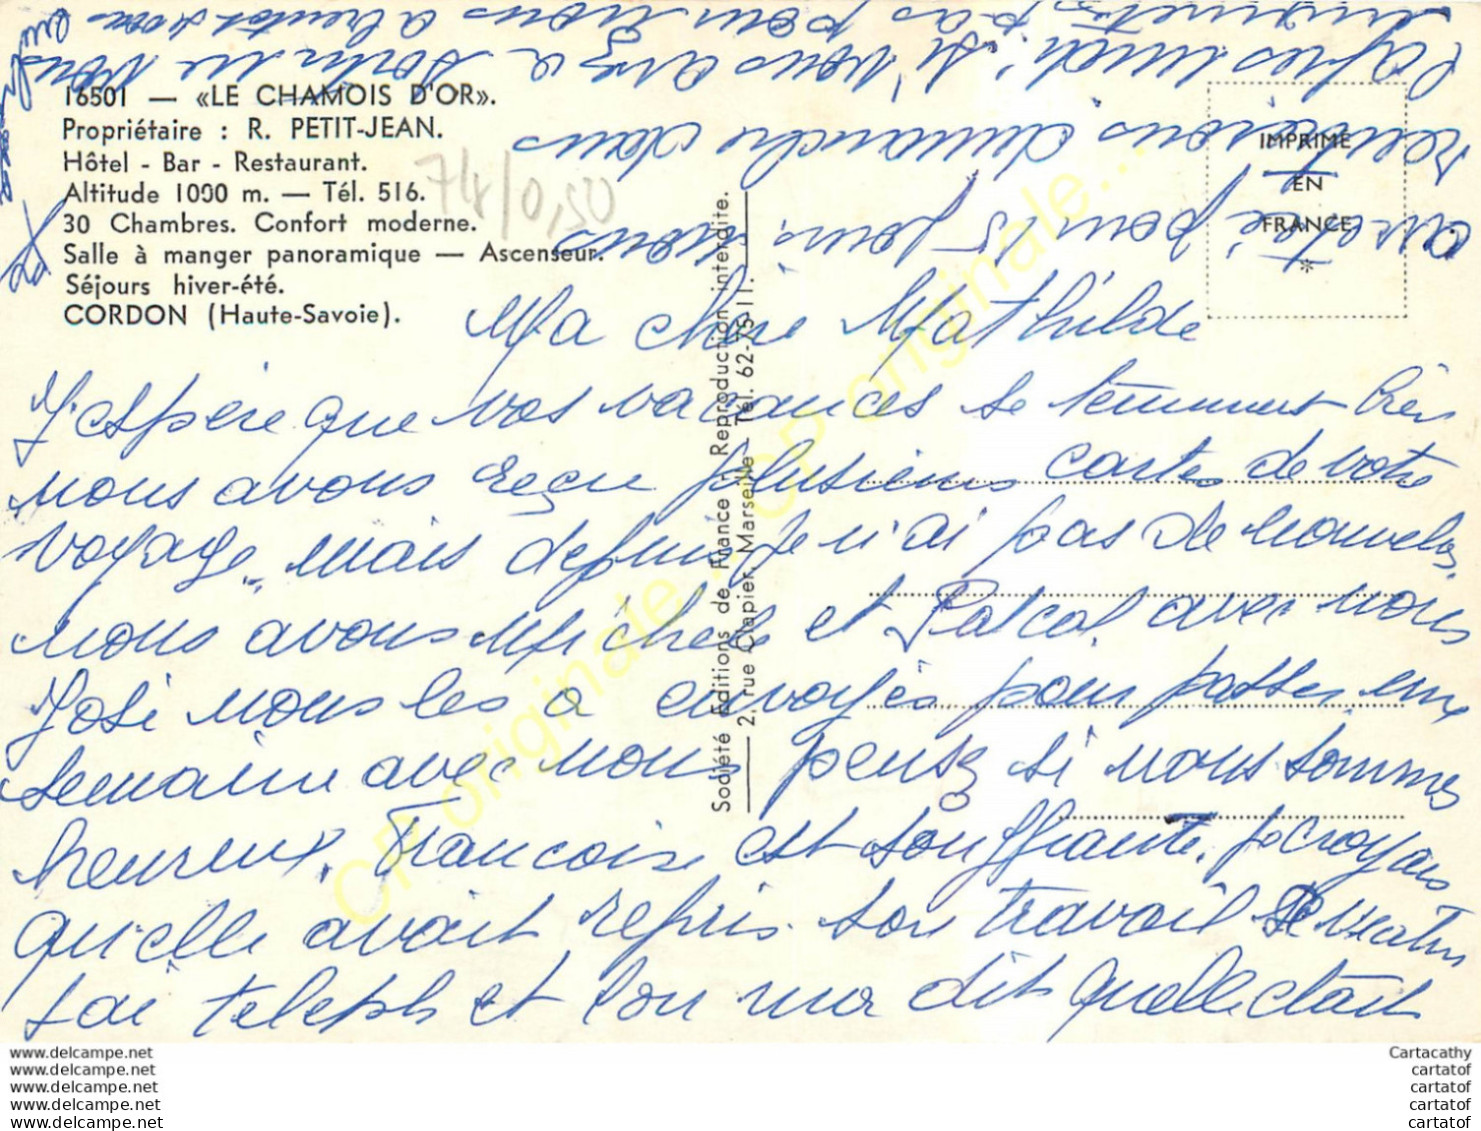 16501 — «LE CHAMOIS D'OR».
Propriétaire : R. PETIT-JEAN.
Hôtel - Bar - Restaurant.
Altitude 1000 m. — Tél. 516.
30 Chambres. Confort moderne.
Salle à manger panoramique — Ascenseur.
Séjours hiver-été.
CORDON (Haute-Savoie).
74/0,50
IMPRIMÉ
EN
FRANCE
*
Société Editions de France - Reproduction interdite.
2, rue Clapier, Marseille - Tél. 62-75-11.
Ma chère Mathilde
J'espère que vos vacances se terminent bien
nous avons reçu plusieurs cartes de votre
voyage, mais depuis je n'ai pas de nouvelles.
nous avons Michele et Pascal avec nous
José nous les a envoyés pour passer une
semaine avec nous pensez si nous sommes
heureux. Francoise est souffrante. je croyais
qu'elle avait repris son travail ce matin
j'ai teleph et l'on ma dit quelle etait
arretée pour 15 jours. nous
seront dimanche dans
l'apres midi. Si vous avez a sortir ne vous
pas pour nous a bientot
CP originale...
www.delcampe.net
www.delcampe.net
www.delcampe.net
www.delcampe.net
www.delcampe.net
Cartacathy
cartatof
cartatof
cartatof
cartatof